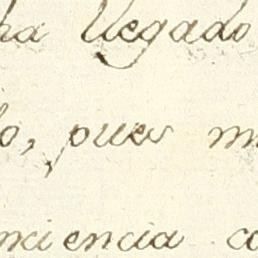 ha llegado
lo, pues m
nciencia co